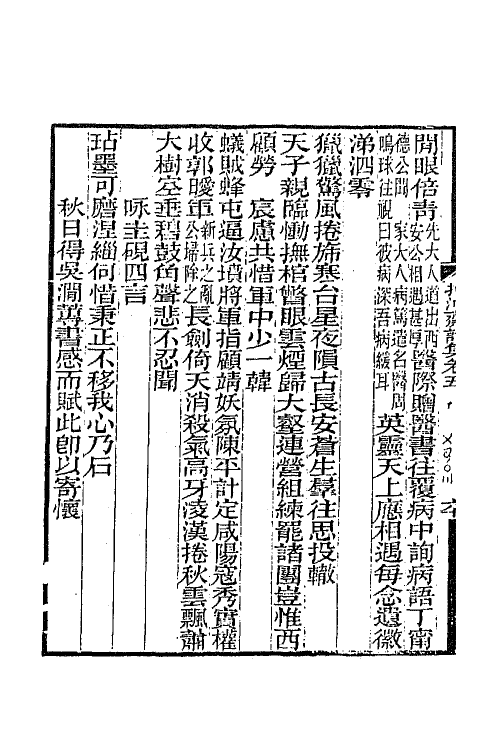 開眼倍青先大人道出西安公相遇甚厚際贈醫書往覆病中詢病語丁甯
德公聞家大人病篤道名醫周鳴球往視曰彼病深吾病緩耳英靈天上應相遇每念遺徽
涕泗零
獵獵驚風捲旆寒台星夜隕古長安蒼生羣往思投轍
天子親臨慟撫棺瞥眼雲煙歸大壑連營組練罷諸團豈惟西
顧勞　宸慮共惜軍中少一韓
蟻賊蜂屯逼汝墳將軍指顧靖妖氛陳平計定咸陽寇秀實權
收郭曖軍新兵之亂公掃除之長劍倚天消殺氣高牙淩漢捲秋雲飄蕭
大樹空垂碧鼓角聲悲不忍聞
咏圭硯四言
玷墨可磨涅緇何惜秉正不移我心乃石
秋日得吳澗蓴書感而賦此卽以寄懷